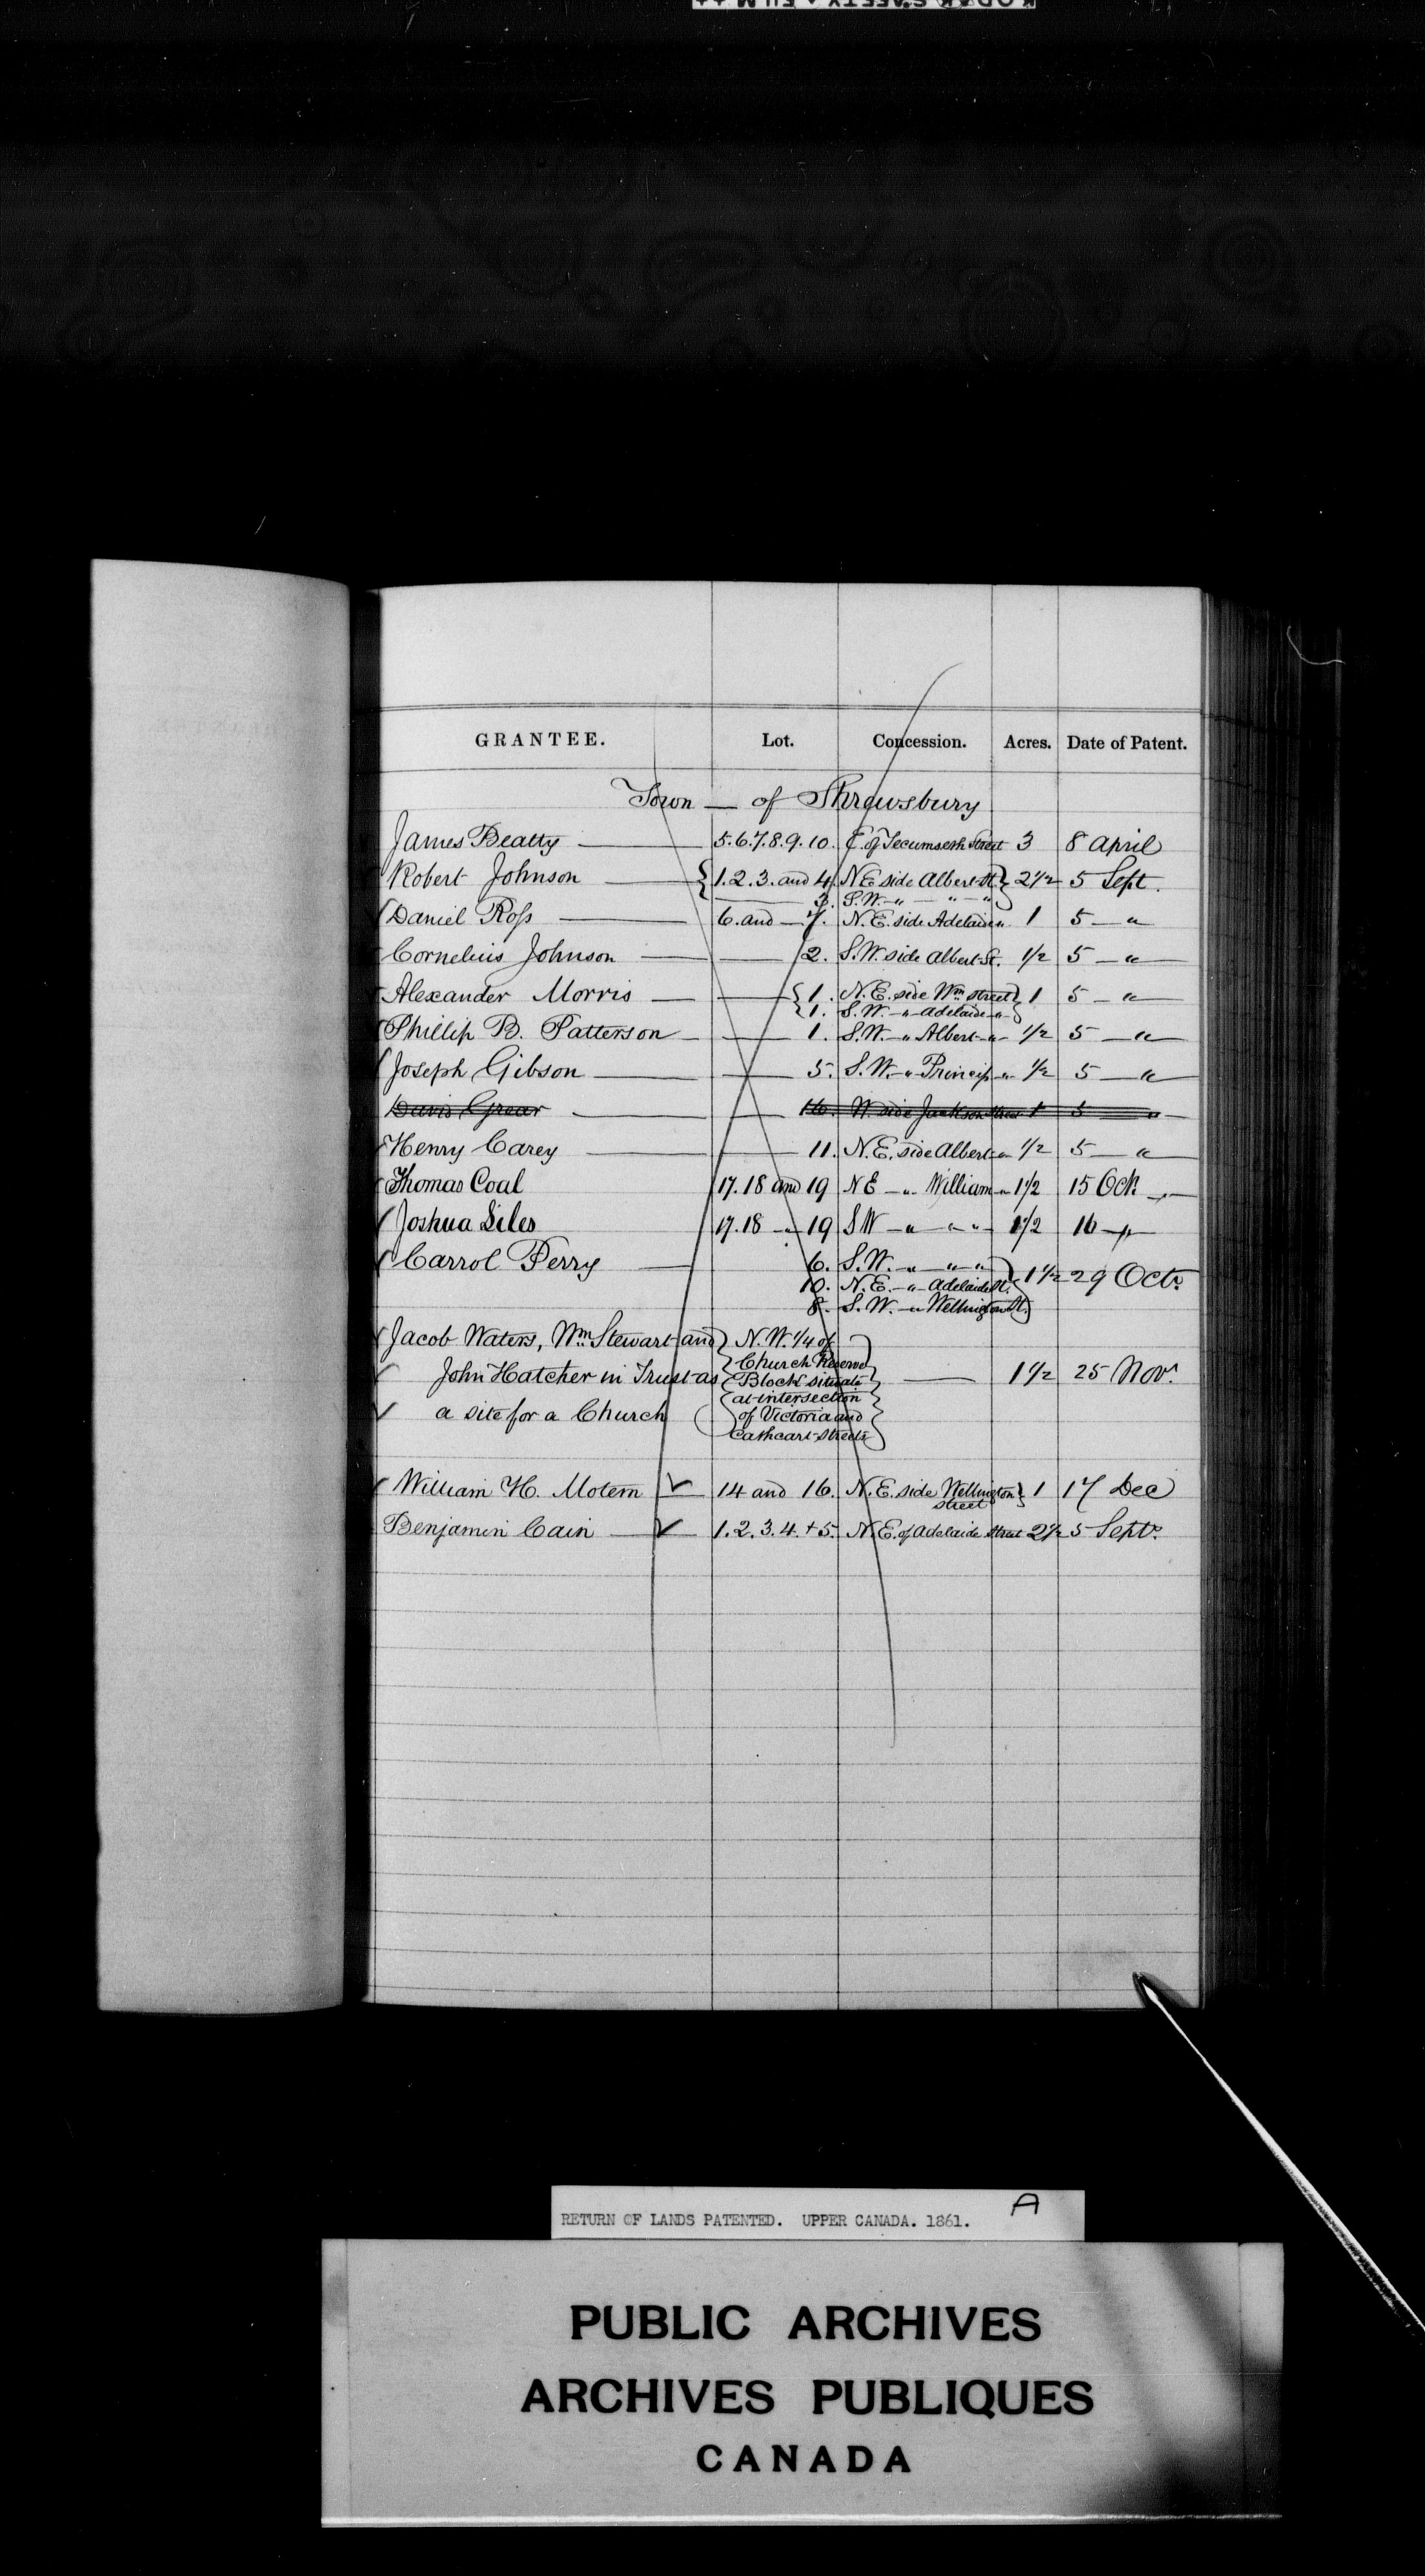 KODAK SAFETY FILM ++
GRANTEE. Lot. Concession. Acres. Date of Patent.
Town — of Shrewsbury
James Beatty — 5.6.7.8.9.10. E. of Tecumseth Street 3 8 April
Robert Johnson — { 1.2.3. and 4. N.E. side Albert St. } 2 1/2 5 Sept.
— 3. S.W. " — " "
Daniel Ross — 6. and — 7. N.E. side Adelaide " 1 5 — "
Cornelius Johnson — — 2. S.W. side Albert St. 1/2 5 — "
Alexander Morris — — { 1. N.E. side Wm. street } 1 5 — "
1. S.W. — " Adelaide — "
Phillip B. Patterson — — 1. S.W. — " Albert — " 1/2 5 — "
Joseph Gibson — — 5. S.W. — " Princip — " 1/2 5 — "
David Grear — — 16. W. side Jackson Street 1 5 — "
Henry Carey — — 11. N.E. side Albert — " 1/2 5 — "
Thomas Coal 17. 18 and 19 N E — " William — " 1 1/2 15 Oct.
Joshua Liles 17. 18 — " 19 S W — " — " — " 1 1/2 16 — "
Carrol Perry — 6. S.W. — " — " — " } 1 1/2 29 Octr.
10. N.E. — " — Adelaide St.
8. S.W. — " Wellington St.
Jacob Waters, Wm. Stewart and } N.W. 1/4 of
Church Reserve
John Hatcher in Trust as Block situate — 1 1/2 25 Novr.
at intersection
a site for a Church of Victoria and
Cathcart Streets
William H. Motem — 14 and 16. N.E. side Wellington } 1 17 Dec
street
Benjamin Cain — 1. 2. 3. 4. + 5. N.E. of Adelaide Street 2 1/2 5 Septr.
RETURN OF LANDS PATENTED. UPPER CANADA. 1861. A
PUBLIC ARCHIVES
ARCHIVES PUBLIQUES
CANADA